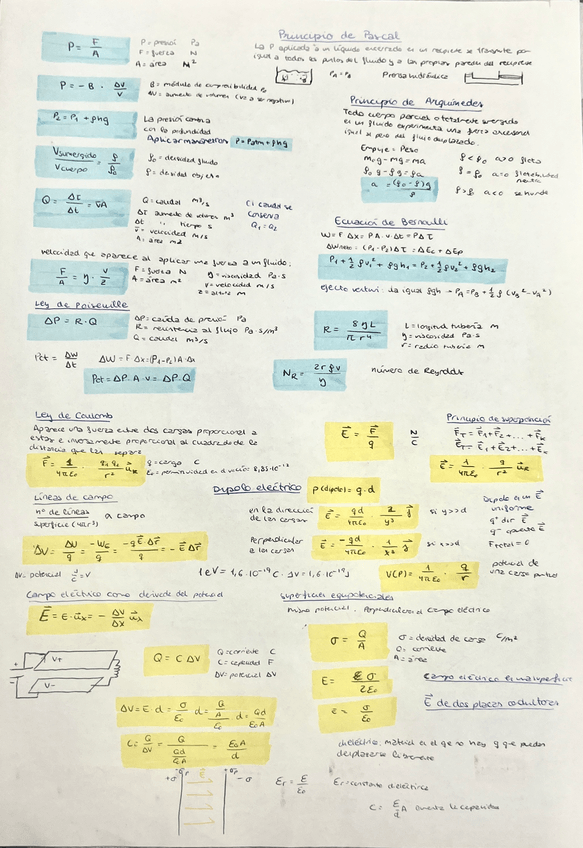 P = F/A
P = presión Pa
F = fuerza N
A = área M²
P = -B · ΔV/V
B = módulo de compresibilidad
ΔV = aumento de volumen (va a ser negativo)
P₂ = P₁ + ρhg
La presión cambia
con la profundidad
P = Patm + ρhg
Vsumergido/Vcuerpo = ρ/ρ₀
ρ₀ = densidad fluido
ρ = densidad objeto
Q = ΔV/Δt = vA
Q = caudal m³/s
ΔV aumento de volumen m³
Δt " tiempo s
v = velocidad m/s
A = área m²
El caudal se
conserva
Q₁ = Q₂
velocidad que aparece al aplicar una fuerza a un fluido:
F/A = η · v/z
F = fuerza N
A = área m²
η = viscosidad Pa·s
v = velocidad m/s
z = altura m
Ley de Poiseuille
ΔP = R·Q
ΔP = caída de presión Pa
R = resistencia al flujo Pa·s/m³
Q = caudal m³/s
Pot = ΔW/Δt
ΔW = F·Δx = (P₁-P₂)A·Δx
Pot = ΔP·A·v = ΔP·Q
Principio de Pascal
La P aplicada a un líquido encerrado en un recipiente se transmite por
igual a todos los puntos del fluido y a las propias paredes del recipiente
PA = PB
Prensa hidráulica
Principio de Arquímedes
Todo cuerpo parcial o totalmente sumergido
en un fluido experimenta una fuerza ascensional
igual al peso del fluido desplazado.
Empuje - Peso
m₀g - mg = ma
ρ₀g - ρg = ρa
a = (ρ₀-ρ)g/ρ
ρ < ρ₀ a>0 flota
ρ = ρ₀ a=0 flotabilidad neutra
ρ > ρ₀ a<0 se hunde
Ecuación de Bernoulli
W = F Δx = PA·v·Δt = PΔV
ΔWneto = (P₁-P₂)ΔV = ΔEc + ΔEp
P₁ + ½ρv₁² + ρgh₁ = P₂ + ½ρv₂² + ρgh₂
efecto venturi da igual ρgh → PA = PB + ½ρ(vB² - vA²)
R = 8ηL/πr⁴
L = longitud tubería m
η = viscosidad Pa·s
r = radio tubería m
NR = 2rρv/η
número de Reynolds
Ley de Coulomb
Aparece una fuerza entre dos cargas proporcional a
estas e inversamente proporcional al cuadrado de la
distancia que las separa
F = 1/4πε₀ · q₁q₂/r² ur
q = carga C
ε₀ = permitividad en el vacío: 8,85·10⁻¹²
E = F/q
N/C
Principio de superposición
FT = F₁+F₂+...+Fₖ
ET = E₁+E₂+...+Eₖ
E = 1/4πε₀ · q/r² ur
Líneas de campo
nº de líneas
superficie
α campo
Dipolo eléctrico
p(dipolo) = q·d
en la dirección
de las cargas
E = qd/4πε₀ · 2/y³ j
si y>>d
Perpendicular
a las cargas
E = -qd/4πε₀ · 1/x³ j
si x>>d
Dipolo en un E
uniforme
q⁺ dir E
q⁻ opuesto E
Ftotal = 0
ΔV = ΔU/q = -WE/q = -qEΔr/q = -EΔr
ΔV = potencial J/C = V
1eV = 1,6·10⁻¹⁹C·1V = 1,6·10⁻¹⁹J
V(P) = 1/4πε₀ · q/r
potencial de
una carga puntual
Campo eléctrico como derivada del potencial
E = E·ux = -ΔV/Δx ux
Superficies equipotenciales
mismo potencial. Perpendiculares al campo eléctrico
V+
V-
Q = C ΔV
Q = corriente C
C = capacidad F
ΔV = potencial ΔV
σ = Q/A
σ = densidad de carga C/m²
Q = corriente
A = área
E = σ/2ε₀
campo eléctrico en una superficie
E = σ/ε₀
E de dos placas conductoras
ΔV = E·d = σ/ε₀ d = Q/A/ε₀ d = Qd/ε₀A
C = Q/ΔV = Q/Qd/ε₀A = ε₀A/d
dieléctrico: material en el que no hay q que puedan
desplazarse libremente
+σ
-σ
εr = ε/ε₀
εr = constante dieléctrica
C = ε/d A aumenta la capacidad